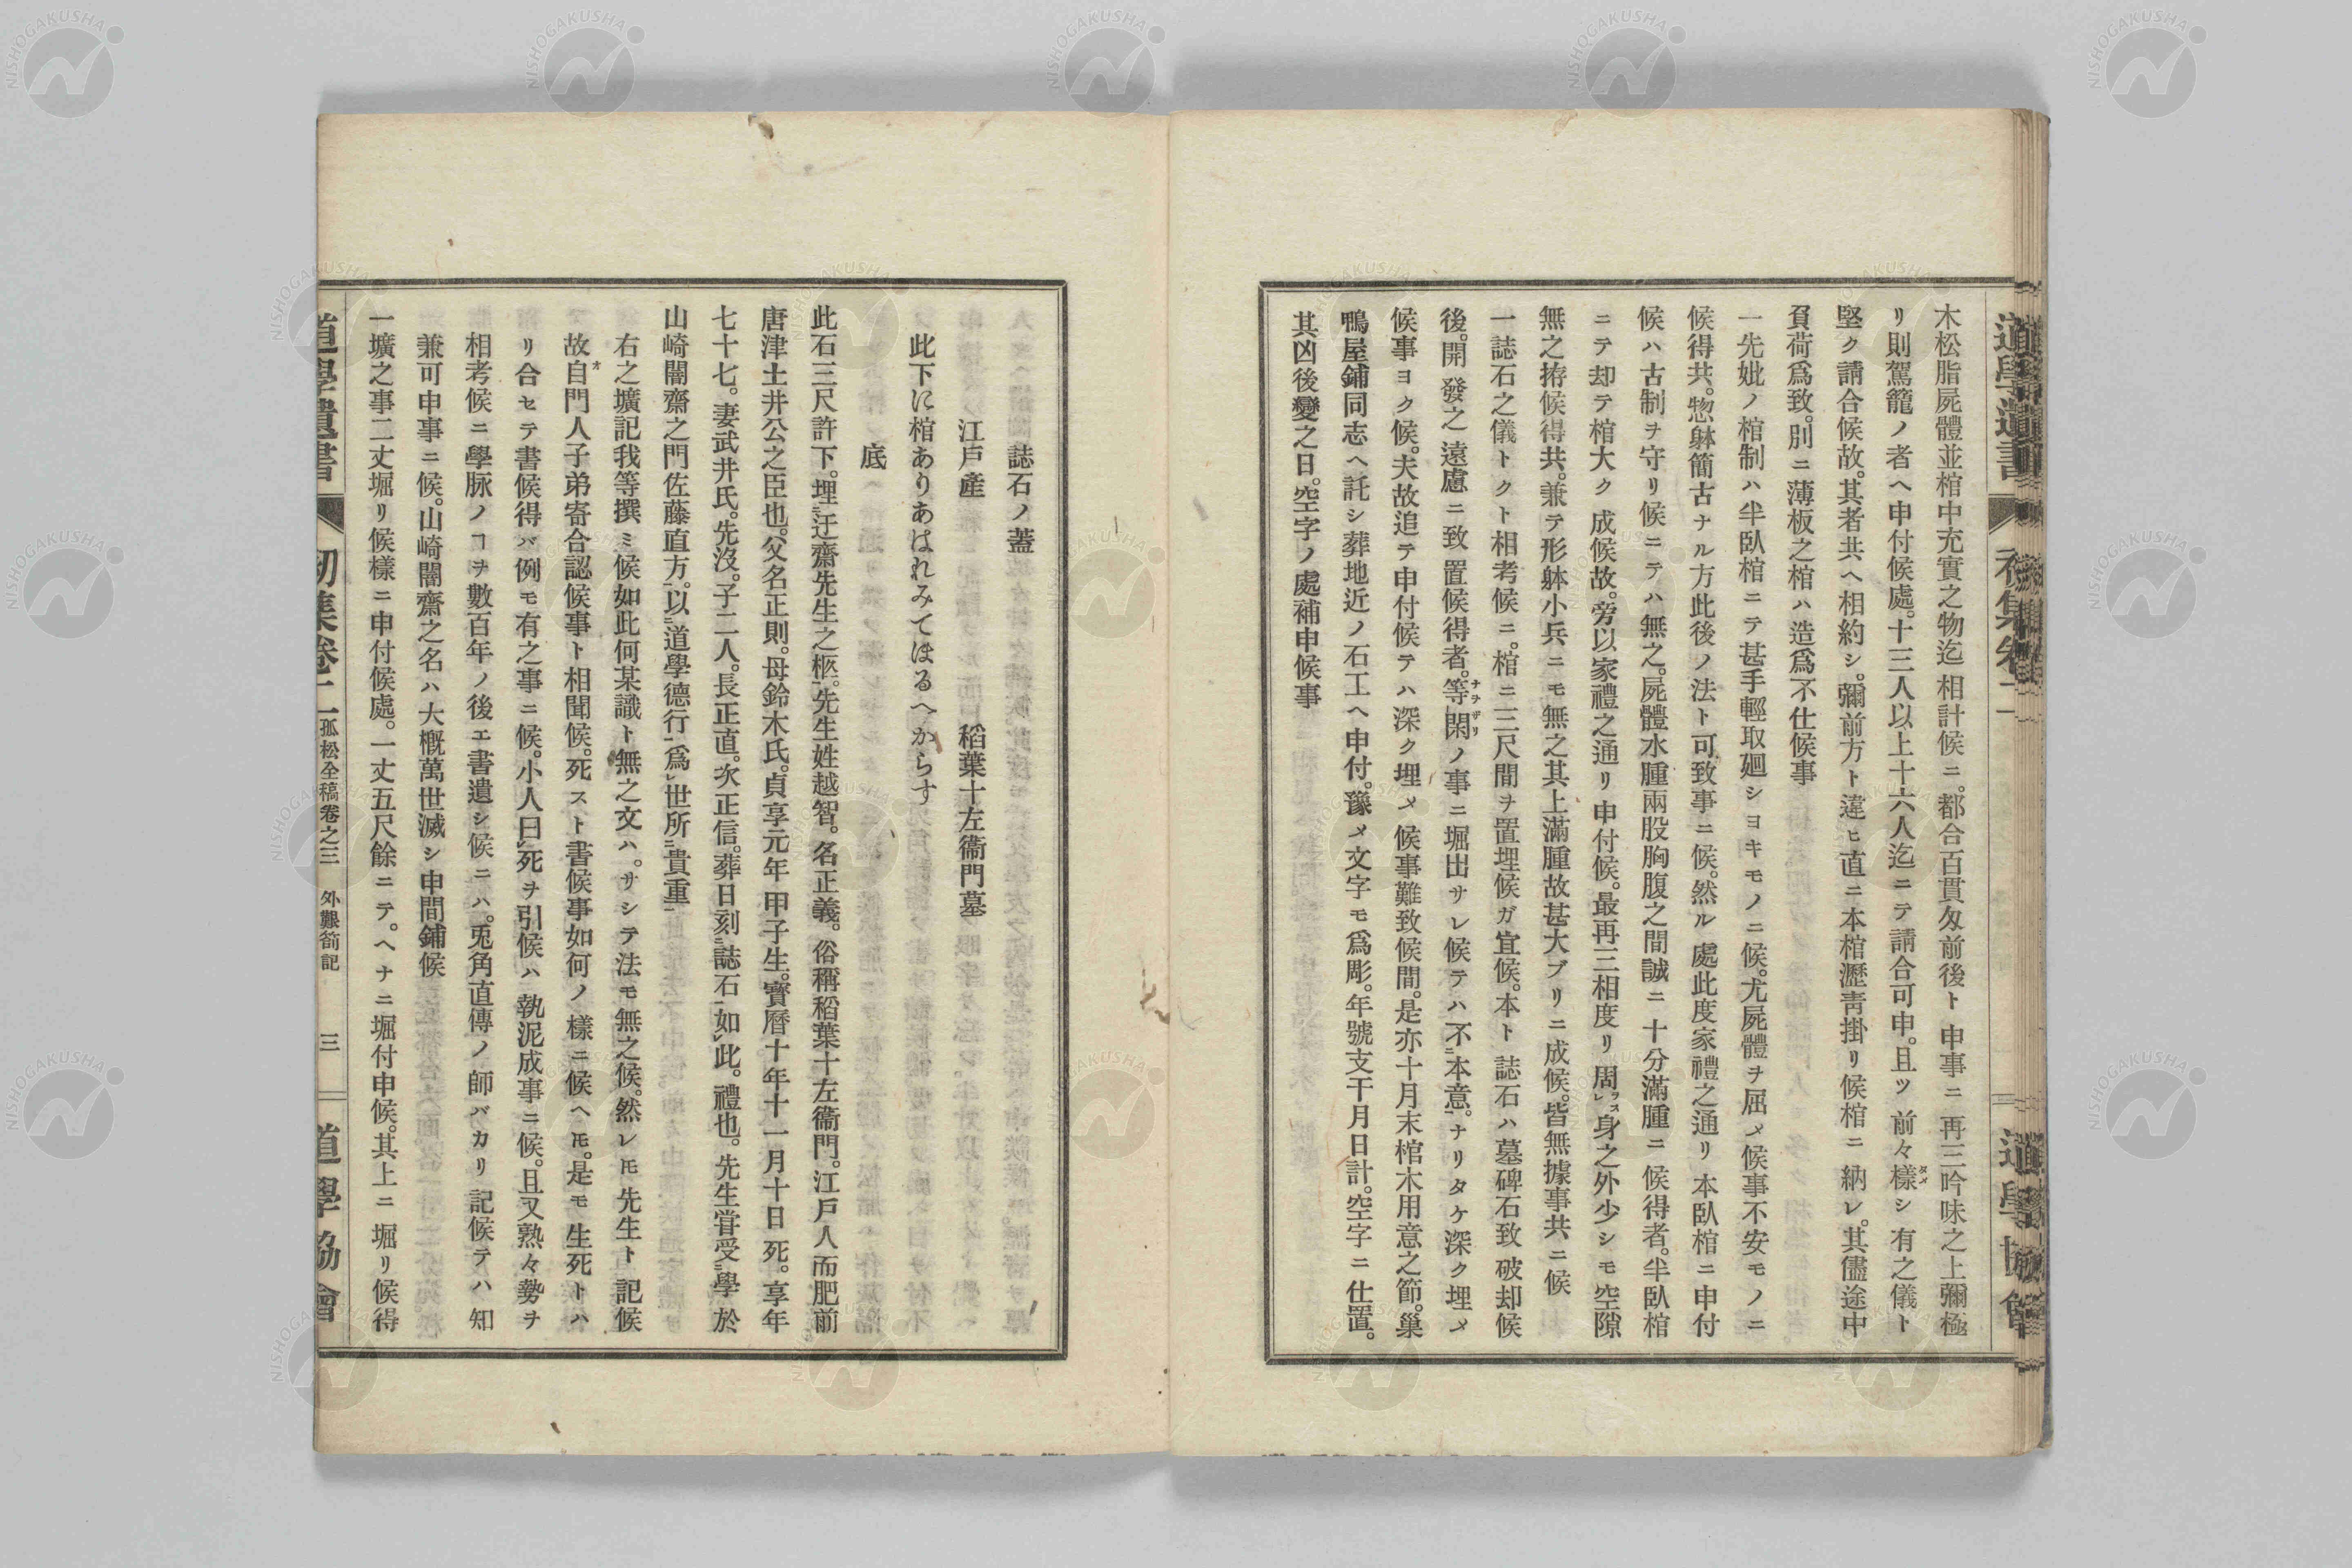 木松脂屍體並棺中充實之物迄相計候ニ。都合百貫匁前後ト申事ニ再三吟味之上彌極
リ則駕籠ノ者ヘ申付候處。十三人以上十六人迄ニテ請合可申。且ツ前々樣シ有之儀ト
堅ク請合候故。其者共ヘ相約シ。彌前方ト違ヒ直ニ本棺瀝靑掛リ候棺ニ納レ。其儘途中
負荷爲致。別ニ薄板之棺ハ造爲不仕候事
一先妣ノ棺制ハ半臥棺ニテ甚手輕取廻シヨキモノニ候。尤屍體ヲ屈メ候事不安モノニ
候得共。惣躰簡古ナル方此後ノ法ト可致事ニ候。然ル處此度家禮之通リ本臥棺ニ申付
候ハ古制ヲ守リ候ニテハ無之。屍體水腫兩股胸腹之間誠ニ十分滿腫ニ候得者。半臥棺
ニテ却テ棺大ク成候故。旁以家禮之通リ申付候。最再三相度リ周身之外少シモ空隙
無之拵候得共。兼テ形躰小兵ニモ無之其上滿腫故甚大ブリニ成候。皆無據事共ニ候
一誌石之儀トクト相考候ニ。棺ニ三尺間ヲ置埋候ガ宜候。本ト誌石ハ墓碑石致破却候
後。開發之遠慮ニ致置候得者。等閑ノ事ニ堀出サレ候テハ不本意。ナリタケ深ク埋メ
候事ヨク候。夫故追テ申付候テハ深ク埋メ候事難致候間。是亦十月末棺木用意之節。巢
鴨屋鋪同志ヘ託シ葬地近ノ石工ヘ申付。豫メ文字モ爲彫。年號支干月日計。空字ニ仕置。
其凶後變之日。空字ノ處補申候事
誌石ノ蓋
江戸產 稻葉十左衞門墓
此下に棺ありあはれみてほるへからす
底
此石三尺許下。埋迂齋先生之柩。先生姓越智。名正義。俗稱稻葉十左衞門。江戸人而肥前
唐津土井公之臣也。父名正則。母鈴木氏。貞享元年甲子生。寶曆十年十一月十日死。享年
七十七。妻武井氏。先沒。子二人。長正直。次正信。葬日刻誌石如此。禮也。先生嘗受學於
山崎闇齋之門佐藤直方。以道學德行爲世所貴重
右之壙記我等撰ミ候如此何某識ト無之文ハ。サシテ法モ無之候。然レ𪜈先生ト記候
故自門人子弟寄合認候事ト相聞候。死スト書候事如何ノ樣ニ候ヘ𪜈。是モ生死トハ
リ合セテ書候得バ例モ有之事ニ候。小人曰死ヲ引候ハ執泥成事ニ候。且又熟々勢ヲ
相考候ニ學脉ノヿヲ數百年ノ後エ書遺シ候ニハ。兎角直傳ノ師バカリ記候テハ知
兼可申事ニ候。山崎闇齋之名ハ大槪萬世滅シ申間鋪候
一壙之事二丈堀リ候樣ニ申付候處。一丈五尺餘ニテ。ヘナニ堀付申候。其上ニ堀リ候得
道學遺書 初集卷二 孤松全稿卷之三 外艱箚記 三 道學協會